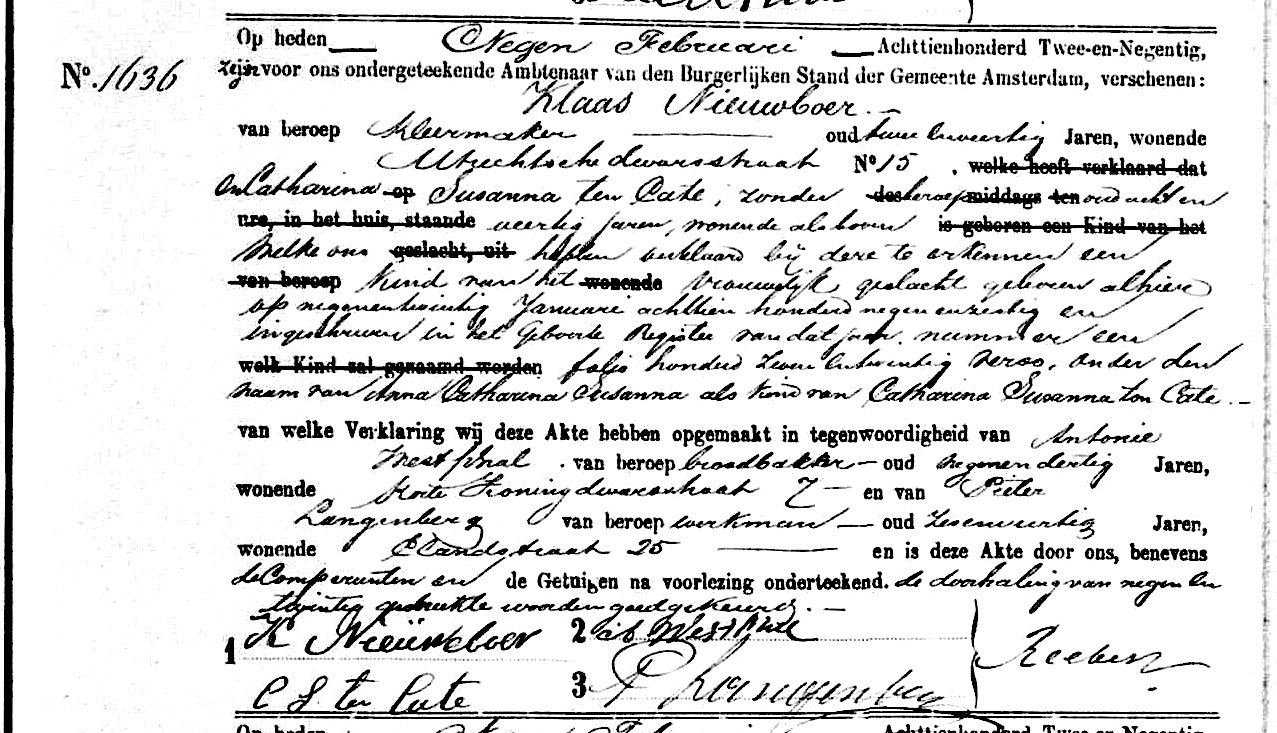 Op heden Negen Februari Achttienhonderd Twee-en-Negentig,
No. 1636 zijn voor ons ondergeteekende Ambtenaar van den Burgerlijken Stand der Gemeente Amsterdam, verschenen:
Klaas Nieuwboer
van beroep kleermaker oud twee en veertig Jaren, wonende
Utrechtsche dwarsstraat No 15, welke heeft verklaard dat
en Catharina op Susanna ten Cate, zonder des beroep middags ten oud acht en
ure, in het huis, staande veertig jaren, wonende als boven is geboren een Kind van het
Welke ons geslacht, uit hebben verklaard bij deze te erkennen een
van beroep Kind van het wonende vrouwelijk geslacht geboren alhier
op negenentwintig Januari achttien honderd negen en zestig en
ingeschreven in het Geboorte Register van dat jaar nummer een
welk Kind zal genaamd worden folio honderd zeven en twintig verso, onder den
naam van Anna Catharina Susanna als kind van Catharina Susanna ten Cate.
van welke Verklaring wij deze Akte hebben opgemaakt in tegenwoordigheid van Antonie
Westphal van beroep broodbakker oud negenendertig Jaren,
wonende Korte Koningdwarsstraat 7 en van Pieter
Langenberg van beroep werkman oud zesenveertig Jaren,
wonende Elandstraat 25 en is deze Akte door ons, benevens
de Comparanten en de Getuigen na voorlezing onderteekend. de doorhaling van negen en
twintig gedrukte woorden goedgekeurd.
1 K Nieuwboer 2 Westphal
C S ten Cate 3 P Langenberg
Op heden Februari Achttienhonderd Twee-en-Negentig